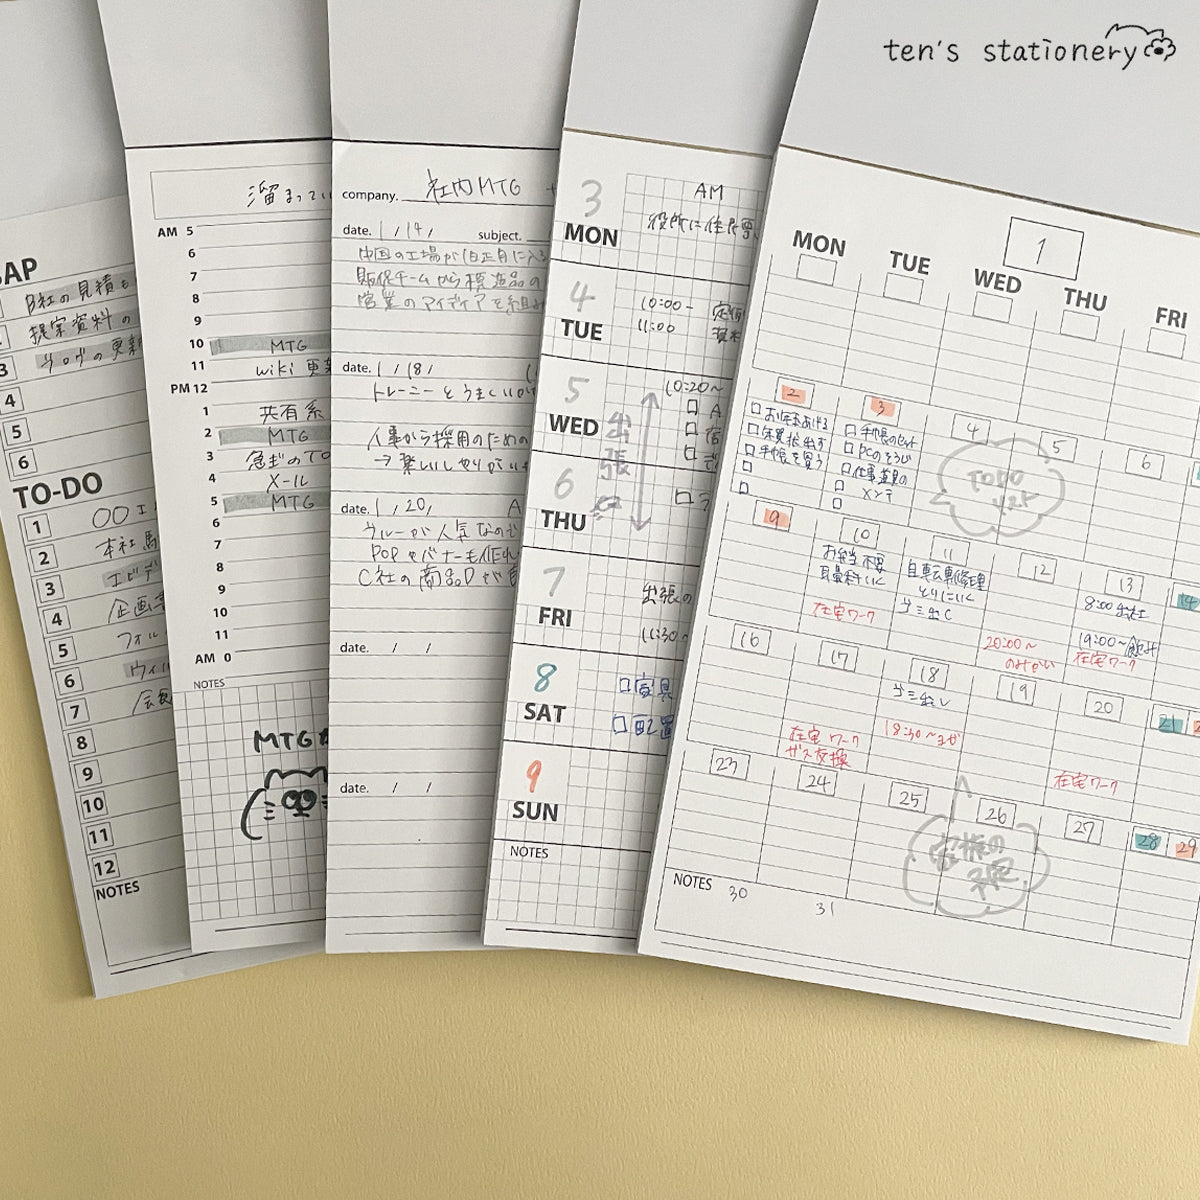 ten's stationery
TO-DO
1
2
3
4
5
6
7
8
9
10
11
12
NOTES
3
4
5
6
B社の見積も
提案資料の
ブログの更新
本社
エビデ
企画
フォル
溜まってい
AM 5
6
7
8
9
10 MTG
11 wiki 更新
PM 12
1 共有系
2 MTG
3 急ぎのTO
4 メール
5 MTG
6
7
8
9
10
11
AM 0
NOTES
MTG
company. 社内MTG
date. 1 / 14 / subject.
中国の工場が旧正月に入る
販促チームから模造品の
営業のアイディアを組み
date. 1 / 18 /
トレーニーとうまくいか
人事から採用のための
→
date. 1 / 20 /
ブルーが人気なので
POPやバナーも作れ
C社の商品Dが
date. / /
date. / /
3
MON
AM
役所に住民票
4
TUE
10:00-
11:00
5
WED
10:20~
出張
6
THU
7
FRI
出張の
11:30~
8
SAT
家具
配置
9
SUN
NOTES
1
MON TUE WED THU FRI
2 3 4 5 6
お年玉あげる
年賀状出す
手帳を買う
手帳のセット
PCのそうじ
仕事道具の
メンテ
TODO
リスト
9 10 11 12 13 14
お弁当不要
耳鼻科いく
在宅ワーク
自転車修理
とりにいく
ゴミ出し
20:00~
のみかい
8:00 出社
19:00~飲み
在宅ワーク
16 17 18 19 20 21
在宅ワーク
ガス点検
ゴミ出し
18:30~ヨガ
在宅ワーク
23 24 25 26 27 28 29
家族の
予定
NOTES 30 31